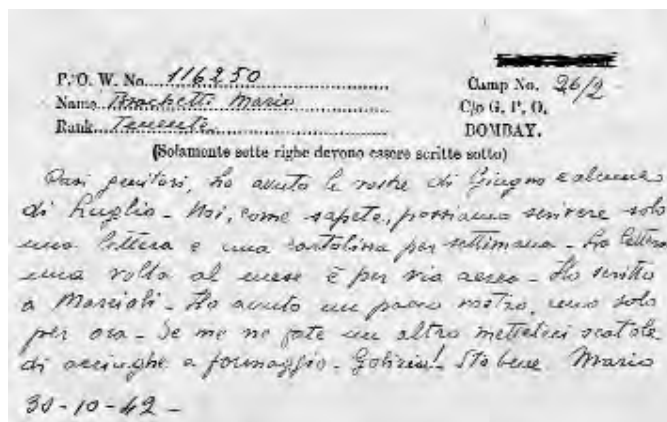 P.O. W. No. 116250
Camp No. 26/2
Name Brachetti Mario
C/o G. P. O.
Rank Tenente
BOMBAY.
(Solamente sette righe devono essere scritte sotto)
Cari genitori, ho avuto le vostre di Giugno e alcune
di Luglio - Noi, come sapete, possiamo scrivere solo
una lettera e una cartolina per settimana - La lettera
una volta al mese è per via aerea - Ho scritto
a Marziali - Ho avuto un pacco vostro, uno solo
per ora - Se me ne fate un altro metteteci scatole
di acciughe e formaggio - Golizia! Sto bene. Mario
30-10-42 -